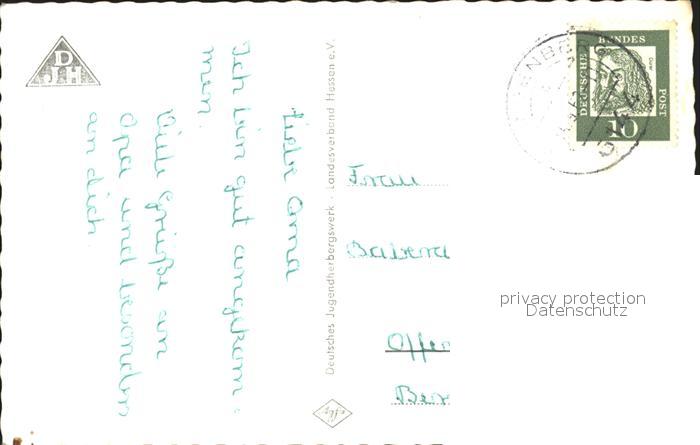 DJH
Liebe Oma
Ich bin gut angekom-
men.
Viele Grüße an
Opa und besonders
an dich.
Deutsches Jugendherbergswerk - Landesverband Hessen e.V.
Frau
Offen
DEUTSCHE BUNDES POST
10
privacy protection
Datenschutz